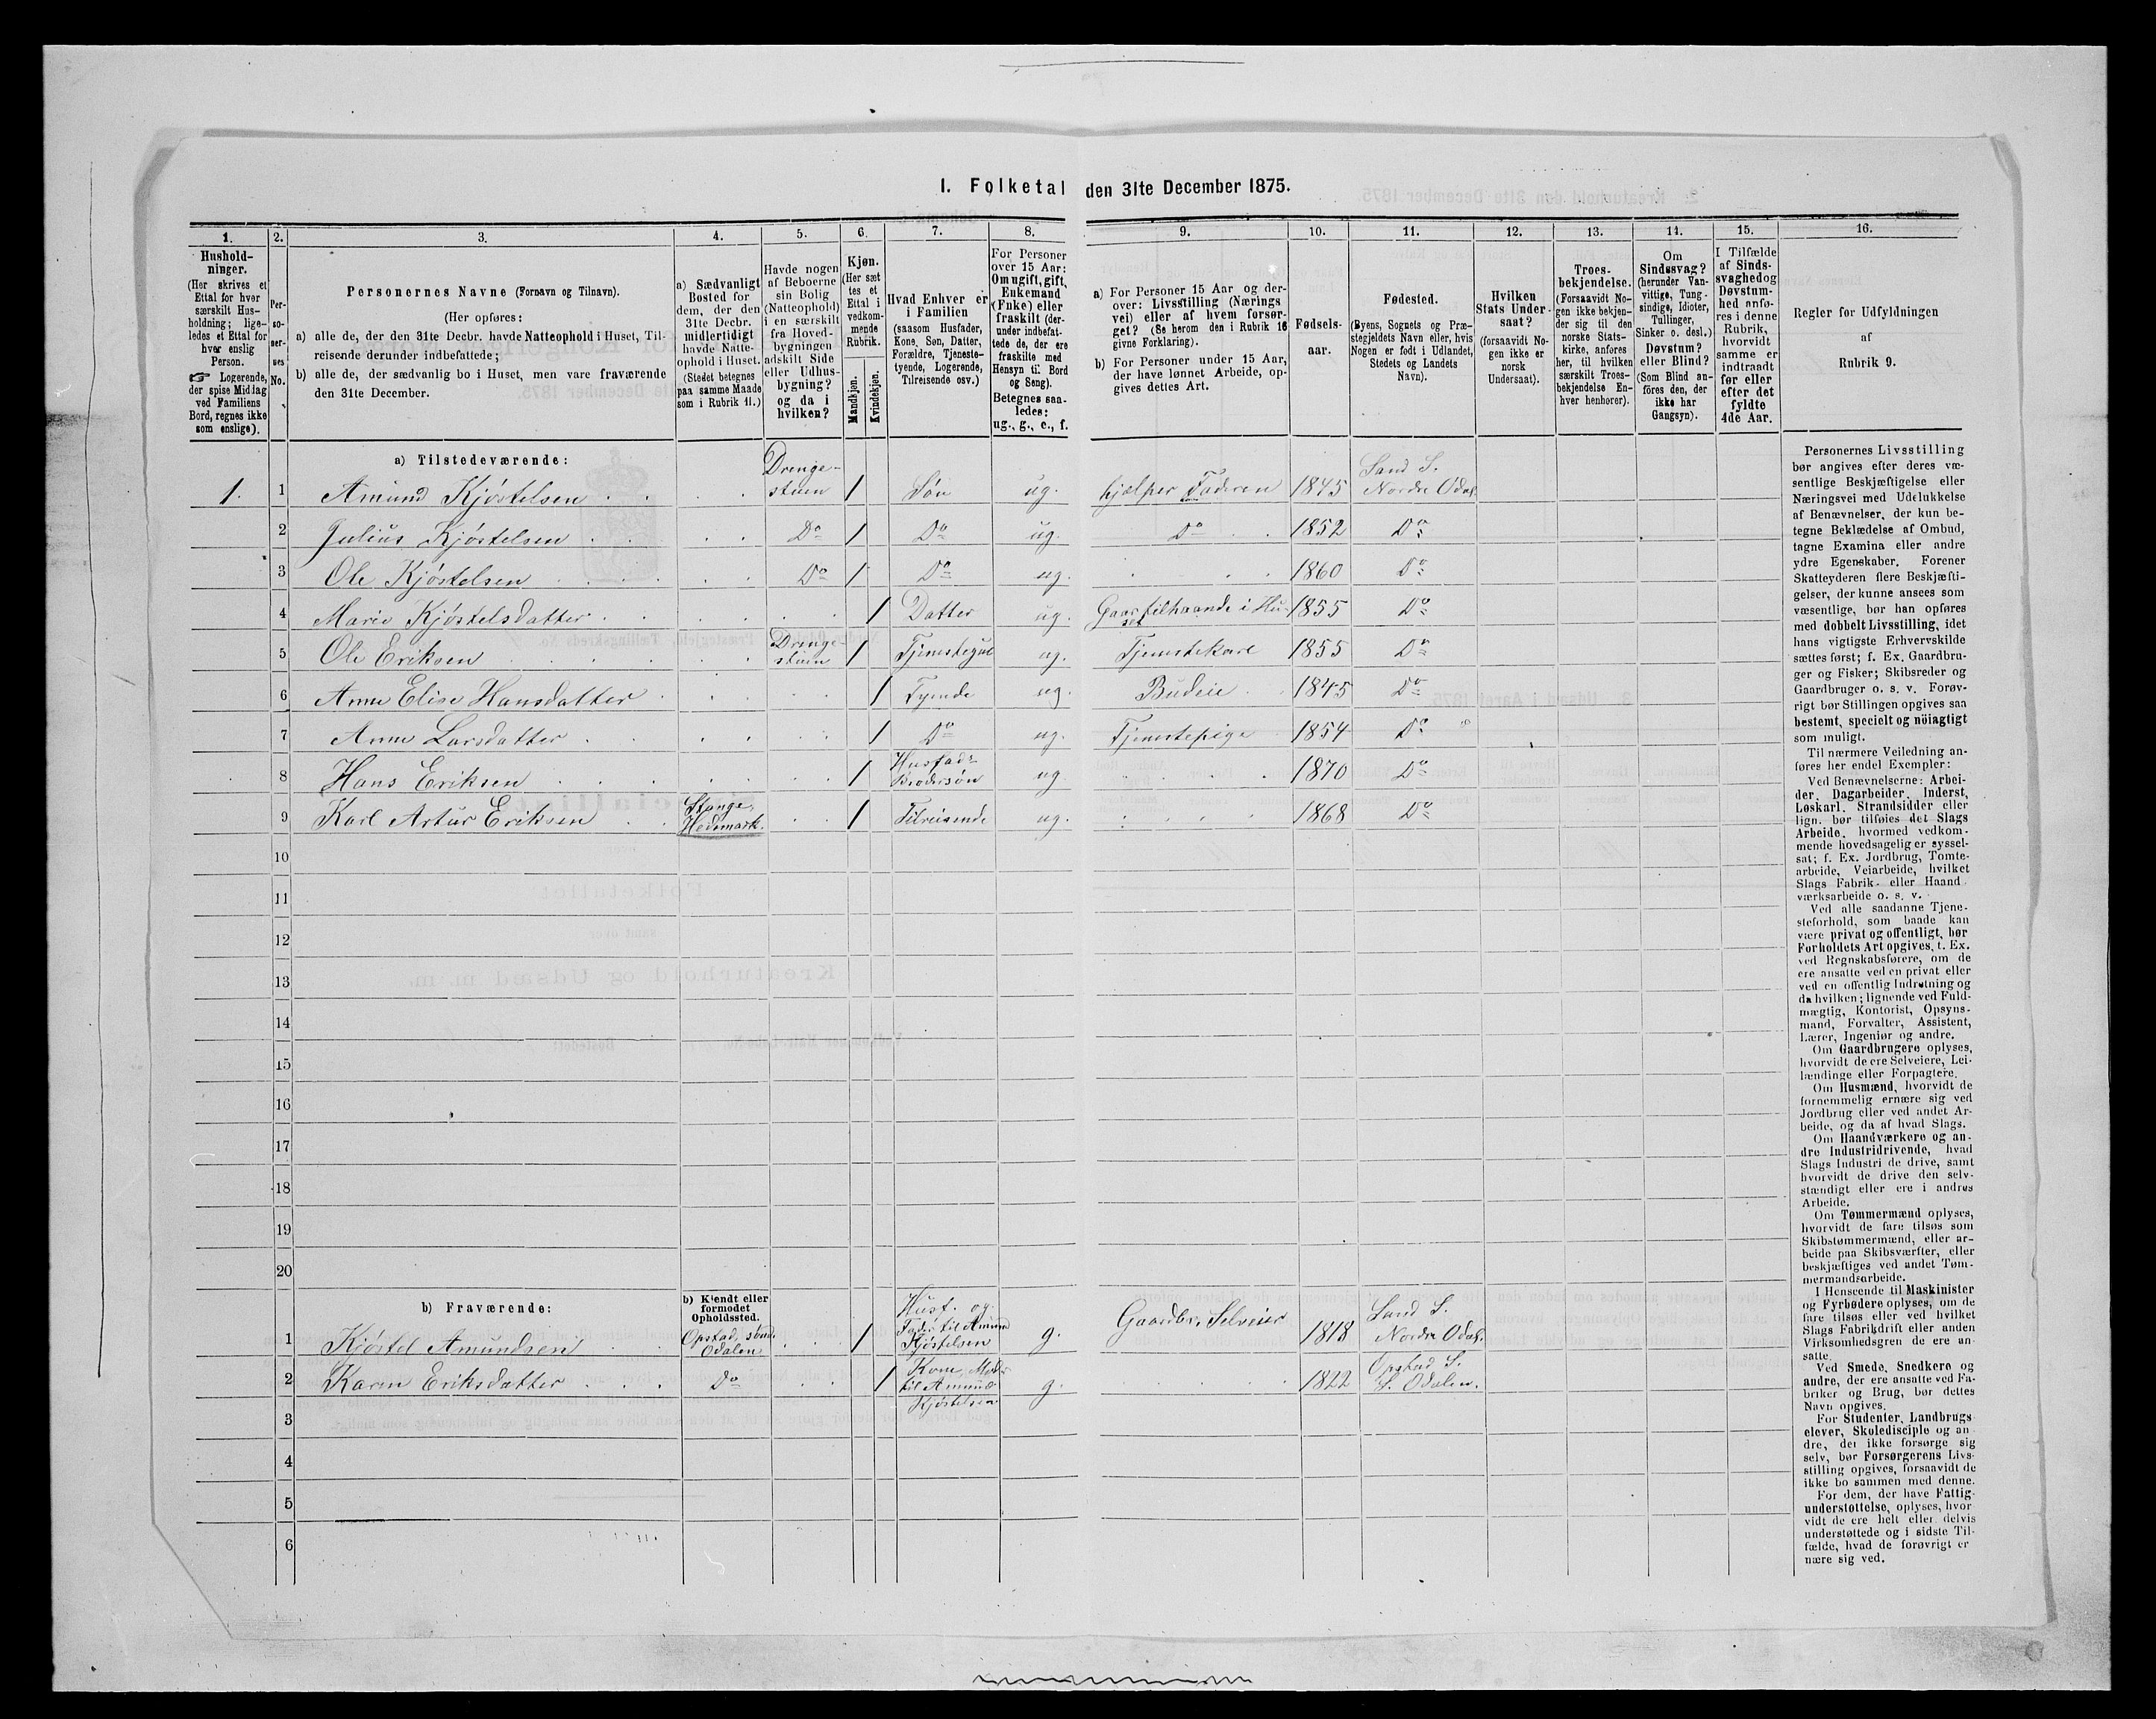 I. Folketal den 31te December 1875.
1. 2. 3. 4. 5. 6. 7. 8. 9. 10. 11. 12. 13. 14. 15. 16.
Hushold-
ninger.
(Her skrives et
Ettal for hver
særskilt Hus-
holdning; lige-
ledes et Ettal for
hver enslig
Person.
☞ Logerende,
der spise Middag
ved Familiens
Bord, regnes ikke
som enslige).
Per-
so-
ner-
nes
No.
Personernes Navne (Fornavn og Tilnavn).
(Her opføres:
a) alle de, der den 31te Decbr. havde Natteophold i Huset, Til-
reisende derunder indbefattede;
b) alle de, der sædvanlig bo i Huset, men vare fraværende
den 31te December.
a) Sædvanligt
Bosted for
dem, der den
31te Decbr.
midlertidigt
havde Natte-
ophold i Huset.
(Stedet betegnes
paa samme Maade
som i Rubrik 11.)
Havde nogen
af Beboerne
sin Bolig
(Natteophold)
i en særskilt
fra Hoved-
bygningen
adskilt Side
eller Udhus-
bygning?
og da i
hvilken?
Kjøn.
(Her sæt
tes et
Ettal i
vedkom-
mende
Rubrik.
Mandkjøn.
Kvindekjøn.
Hvad Enhver er
i Familien
(saasom Husfader,
Kone, Søn, Datter,
Forældre, Tjeneste-
tyende, Logerende,
Tilreisende osv.)
For Personer
over 15 Aar:
Om ugift, gift,
Enkemand
(Enke) eller
fraskilt (der-
under indbefat-
tede de, der ere
fraskilte med
Hensyn til Bord
og Seng).
Betegnes saa-
ledes:
ug., g., e., f.
a) For Personer 15 Aar og der-
over: Livsstilling (Nærings
vei) eller af hvem forsør-
get? (Se herom den i Rubrik 16
givne Forklaring).
b) For Personer under 15 Aar,
der have lønnet Arbeide, op-
gives dettes Art.
Fødsels-
aar.
Fødested.
(Byens, Sognets og Præ-
stegjeldets Navn eller, hvis
Nogen er født i Udlandet,
Stedets og Landets
Navn).
Hvilken
Stats Under-
saat?
(forsaavidt No-
gen ikke er
norsk
Undersaat).
Troes-
bekjendelse.
(Forsaavidt No-
gen ikke bekjen-
der sig til den
norske Stats-
kirke, anføres
her, til hvilken
særskilt Troes-
bekjendelse En-
hver henhører).
Om
Sindssvag?
(herunder Van-
vittige, Tung-
sindige, Idioter,
Tullinger,
Sinker o. desl.)
Døvstum?
eller Blind?
(Som Blind an-
føres den, der
ikke har
Gangsyn).
I Tilfælde
af Sinds-
svaghed og
Døvstum-
hed anfø-
res i denne
Rubrik,
hvorvidt
samme er
indtraadt
før eller
efter det
fyldte
4de Aar.
Regler for Udfyldningen
af
Rubrik 9.
a) Tilstedeværende:
1. 1 Amund Kjøstelsen Drenge-stuen 1 Søn ug. hjælper Faderen 1845 Sand S. Nordre Odal.
2 Julius Kjøstelsen Do 1 Do ug. Do 1852 Do
3 Ole Kjøstelsen Do 1 Do ug. 1860 Do
4 Marie Kjøstelsdatter 1 Datter ug. Gaar tilhaande i Huset 1855 Do
5 Ole Eriksen Drenge-stuen 1 ug. Tjenestekarl 1855 Do
6 Anne Elise Hansdatter 1 Tyende ug. Budeie 1845 Do
7 Anne Larsdatter 1 Do ug. Tjenestepige 1854 Do
8 Hans Eriksen 1 Husfads Brodersøn ug. 1870 Do
9 Karl Artur Eriksen Stange, Hedemark. 1 Tilreisende ug. 1868 Do
10
11
12
13
14
15
16
17
18
19
20
b) Fraværende:
b) Kjendt eller
formodet
Opholdssted.
1 Kjøstel Amundsen Opstad, søndr Odalen 1 Husf. og Fader til Amund Kjøstelsen g. Gaardbr. Selveier 1818 Sand S. Nordre Odal.
2 Karen Eriksdatter Do 1 Kone, Moder til Amund Kjøstelsen g. 1822 Opstad S. S. Odalen.
3
4
5
6
Personernes Livsstilling
bør angives efter deres væ-
sentlige Beskjæftigelse eller
Næringsvei med Udelukkelse
af Benævnelser, der kun be-
tegne Beklædelse af Ombud,
tagne Examina eller andre
ydre Egenskaber. Forener
Skatteyderen flere Beskjæfti-
gelser, der kunne ansees som
væsentlige, bør han opføres
med dobbelt Livsstilling, idet
hans vigtigste Erhvervskilde
sættes først; f. Ex. Gaardbru-
ger og Fisker; Skibsreder og
Gaardbruger o. s. v. Forøv-
rigt bør Stillingen opgives saa
bestemt, specielt og nöiagtigt
som muligt.
Til nærmere Veiledning an-
føres her endel Exempler:
Ved Benævnelserne: Arbei-
der, Dagarbeider, Inderst,
Løskarl, Strandsidder eller
lign. bør tilføies det Slags
Arbeide, hvormed vedkom-
mende hovedsagelig er syssel-
sat; f. Ex. Jordbrug, Tomte-
arbeide, Veiarbeide, hvilket
Slags Fabrik- eller Haand
værksarbeide o. s. v.
Ved alle saadanne Tjene-
steforhold, som baade kan
være privat og offentligt, bør
Forholdets Art opgives, t. Ex.
ved Regnskabsførere, om de
ere ansatte ved en privat eller
ved en offentlig Indretning og
da hvilken; lignende ved Fuld-
mægtig, Kontorist, Opsyns-
mand, Forvalter, Assistent,
Lærer, Ingeniør og andre.
Om Gaardbrugere oplyses,
hvorvidt de ere Selveiere, Lei-
lændinge eller Forpagtere.
Om Husmænd, hvorvidt de
fornemmelig ernære sig ved
Jordbrug eller ved andet Ar-
beide, og da af hvad Slags.
Om Haandværkere og an-
dre Industridrivende, hvad
Slags Industri de drive, samt
hvorvidt de drive den selv-
stændigt eller ere i andres
Arbeide.
Om Tømmermænd oplyses,
hvorvidt de fare tilsøs som
Skibstømmermænd, eller ar-
beide paa Skibsværfter, eller
beskjæftiges ved andet Tøm-
mermandsarbeide.
I Henseende til Maskinister
og Fyrbødere oplyses, om de
fare tilsøs eller ved hvilket
Slags Fabrikdrift eller anden
Virksomhedsgren de ere an-
satte.
Ved Smede, Snedkere og
andre, der ere ansatte ved Fa-
briker og Brug, bør dettes
Navn opgives.
For Studenter, Landbrugs
elever, Skoledisciple og an
dre, der ikke forsørge sig
selv, bør Forsørgerens Livs-
stilling opgives, forsaavidt de
ikke bo sammen med denne.
For dem, der have Fattig-
understøttelse, oplyses, hvor
vidt de ere helt eller delvis
understøttede og i sidste Til-
fælde, hvad de forøvrigt er
nære sig ved.